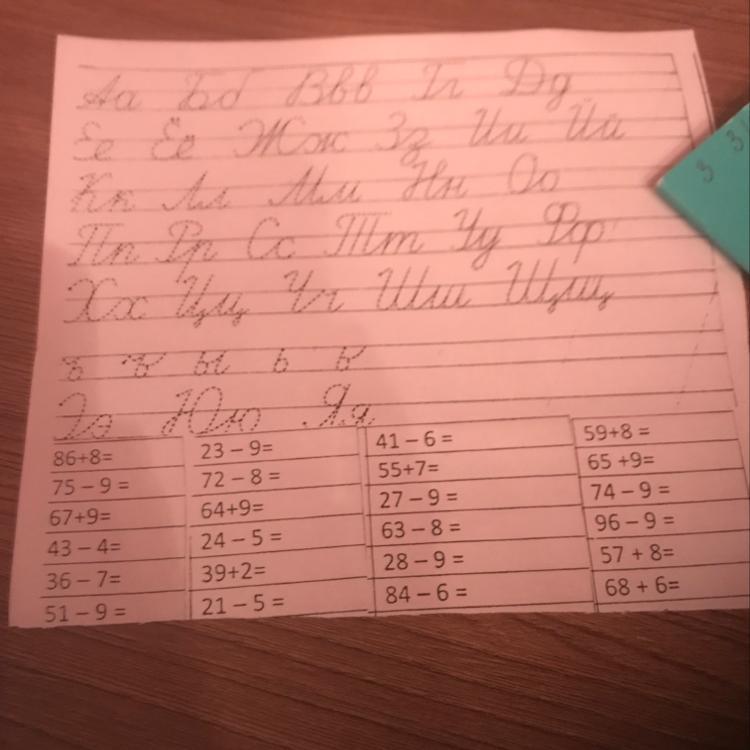 Аа Бб Ввв Гг Дд
Ее Ёё Жж Зз Ии Йй
Кк Лл Мм Нн Оо
Пп Рр Сс Тт Уу Фф
Хх Цц Чч Шш Щщ
ъ ъ ы ь ь
Ээ Юю Яя
86+8= 23 – 9= 41 – 6 = 59+8 =
75 – 9 = 72 – 8 = 55+7= 65 +9=
67+9= 64+9= 27 – 9 = 74 – 9 =
43 – 4= 24 – 5 = 63 – 8 = 96 – 9 =
36 – 7= 39+2= 28 – 9 = 57 + 8=
51 – 9 = 21 – 5 = 84 – 6 = 68 + 6=